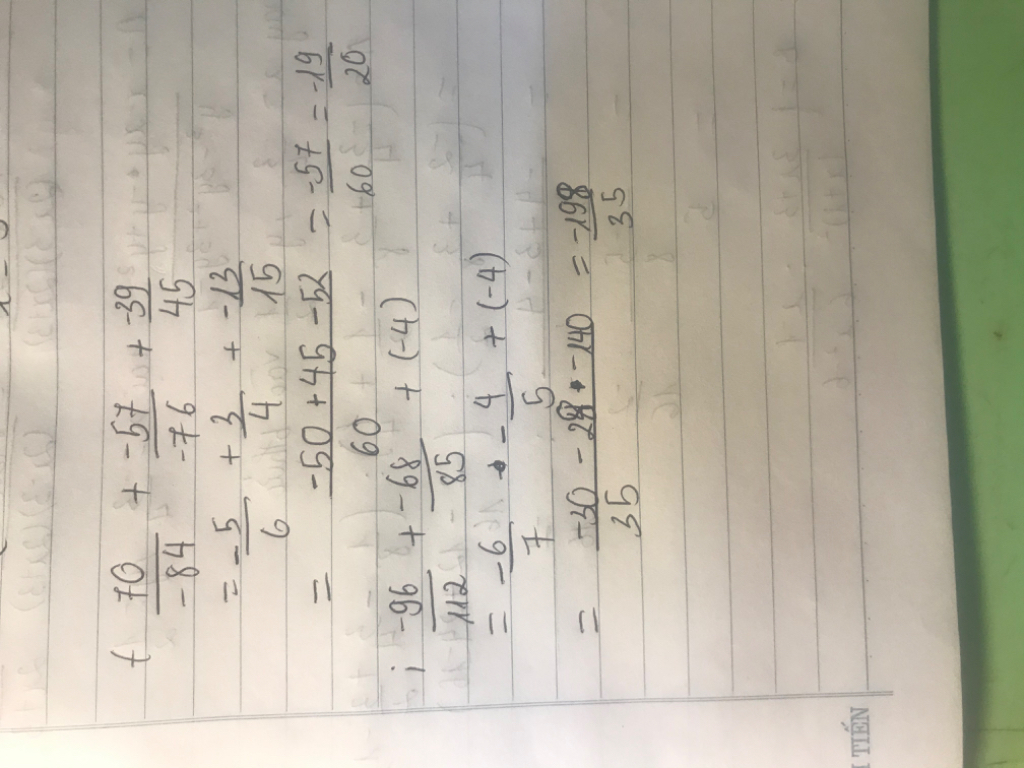 f 70/-84 + -57/-76 + -39/45
= -5/6 + 3/4 + -13/15
= -50 + 45 - 52/60 = -57/60 = -19/20
i -96/112 + -68/85 + (-4)
= -6/7 - 4/5 + (-4)
= -30 - 28 - 140/35 = -198/35
TIẾN